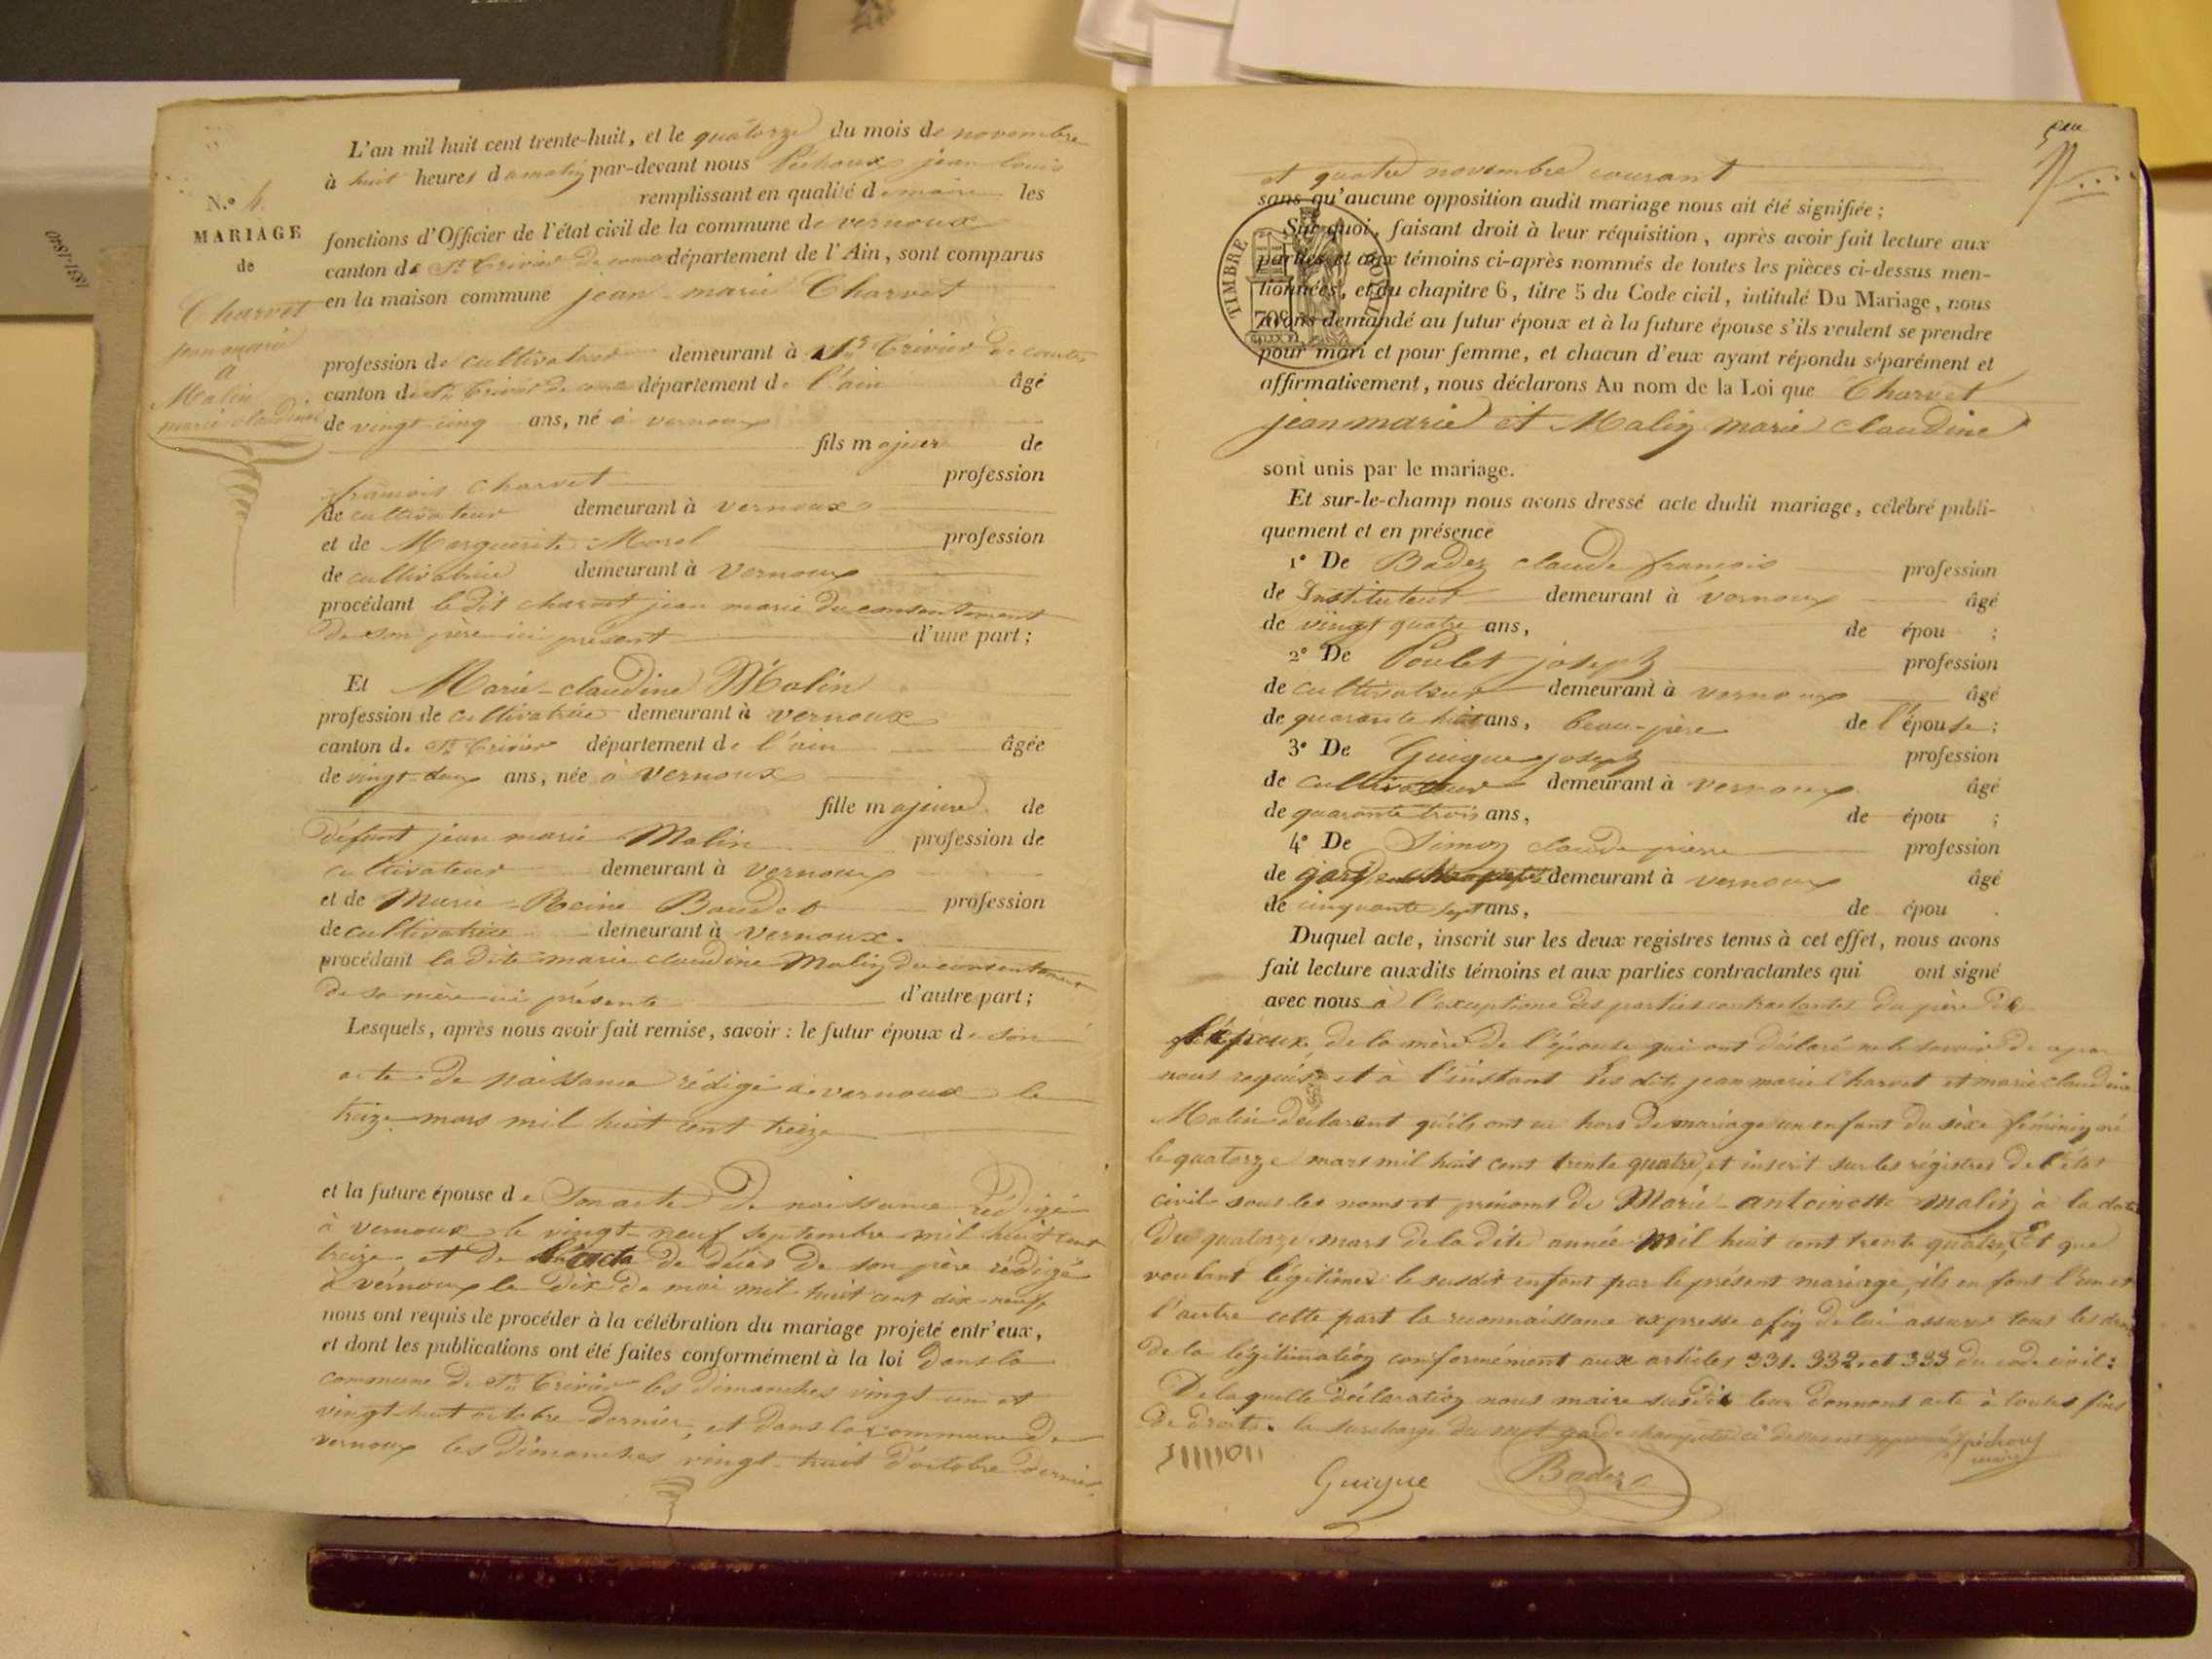 1831-1840
N.° 4.
MARIAGE
de
Charvet
jean marie
à
Malin
marie claudine
L'an mil huit cent trente-huit, et le quatorze du mois de novembre
à huit heures du matin par-devant nous Péchoux jean louis
remplissant en qualité de maire les
fonctions d'Officier de l'état civil de la commune de vernoux
canton de St Trivier de courtes département de l'Ain, sont comparus
en la maison commune jean-marie Charvet
profession de cultivateur demeurant à St Trivier de courtes
canton de St Trivier de courtes département de l'ain âgé
de vingt-cinq ans, né à vernoux
fils majeur de
françois Charvet profession
de cultivateur demeurant à vernoux
et de Marguerite Morel profession
de cultivatrice demeurant à vernoux
procédant le dit charvet jean marie du consentement
de son père ici présent d'une part;
Et Marie-claudine Malin
profession de cultivatrice demeurant à vernoux
canton de St Trivier département de l'ain âgée
de vingt-deux ans, née à vernoux
fille majeure de
défunt jean marie Malin profession de
cultivateur demeurant à vernoux
et de Marie-Reine Baudet profession
de cultivatrice demeurant à vernoux.
procédant la dite marie claudine Malin du consentement
de sa mère ici présente d'autre part;
Lesquels, après nous avoir fait remise, savoir: le futur époux de son
acte de naissance rédigé à vernoux le
treize mars mil huit cent treize
et la future épouse de son acte de naissance rédigé
à vernoux le vingt-neuf septembre mil huit cent
treize et de l'acte de décès de son père rédigé
à vernoux le dix de mai mil huit cent dix-neuf,
nous ont requis de procéder à la célébration du mariage projeté entr'eux,
et dont les publications ont été faites conformément à la loi dans la
commune de St Trivier les dimanches vingt-un et
vingt-huit octobre dernier, et dans la commune de
vernoux les dimanches vingt-huit d'octobre dernier
et quatre novembre courant
sans qu'aucune opposition audit mariage nous ait été signifiée;
TIMBRE ROYAL
70c
Sur quoi, faisant droit à leur réquisition, après avoir fait lecture aux
parties et aux témoins ci-après nommés de toutes les pièces ci-dessus men-
tionnées, et du chapitre 6, titre 5 du Code civil, intitulé Du Mariage, nous
avons demandé au futur époux et à la future épouse s'ils veulent se prendre
pour mari et pour femme, et chacun d'eux ayant répondu séparément et
affirmativement, nous déclarons Au nom de la Loi que Charvet
jean marie et Malin marie claudine
sont unis par le mariage.
Et sur-le-champ nous avons dressé acte dudit mariage, célébré publi-
quement et en présence
1° De Badez claude françois profession
de Instituteur demeurant à vernoux âgé
de vingt quatre ans, de épou ;
2° De Poulet joseph profession
de cultivateur demeurant à vernoux âgé
de quarante huit ans, beau-père de l'épouse;
3° De Guigue joseph profession
de cultivateur demeurant à vernoux âgé
de quarante trois ans, de épou ;
4° De Simon claude pierre profession
de garde champêtre demeurant à vernoux âgé
de cinquante sept ans, de épou .
Duquel acte, inscrit sur les deux registres tenus à cet effet, nous avons
fait lecture auxdits témoins et aux parties contractantes qui ont signé
avec nous à l'exceptions des parties contractantes du père de
l'époux, de la mère de l'épouse qui ont déclaré ne le savoir de ce par
nous requis, et à l'instant Les dits jean marie Charvet et marie claudine
Malin déclarent qu'ils ont eu hors de mariage un enfant du sèxe féminin né
le quatorze mars mil huit cent trente quatre, et inscrit sur les régistres de l'état
civil sous les noms et prénoms de Marie-antoinette Malin à la date
du quatorze mars de la dite année mil huit cent trente quatre, Et que
voulant légitimer le susdit enfant par le présent mariage, ils en font l'un et
l'autre cette part la reconnaissance expresse afin de lui assurer tous les droits
de la légitimation conformément aux articles 331. 332. et 333 du code civil:
De laquelle déclaration nous maire susdit leur donnons acte à toutes fins
de droits. la surcharge du mot garde champêtre ci dessus est approuvé péchoux
maire
simon Guigue Badez